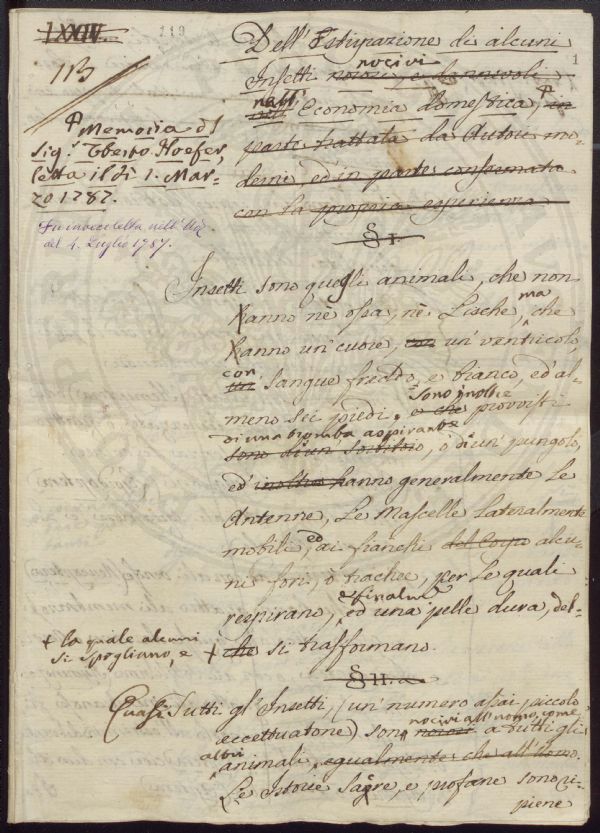 LXXIV.
113
119
1
Dell'Estirpazione di alcuni
Insetti nocivi, e dannevoli
nocivi
nell'
Economia domestica, in
parte trattata da Autori mo-
derni, ed in parte confermata
con la propria esperienza
Memoria del
Sig.r Uberto Hoefer,
letta il dì 1. Mar-
zo 1787.
Fu invece letta nell'
del 4. Luglio 1787.
§ I.
Insetti sono quegli animali, che non
hanno nè ossa, nè Lische, ma che
hanno un'cuore, con un'ventricolo,
con sangue freddo, e bianco, ed'al-
meno sei piedi, e che provvisti
sono inoltre
di una tromba aspirante
sono di un o di un'pungolo,
ed' inoltre hanno generalmente Le
Antenne, Le Mascelle Lateralmente
mobili, ed ai fianchi del Corpo alcu-
ni fori, o trachee, per Le quali
respirano, ed una pelle dura, del-
e finalm.e
che si trasformano.
+ la quale alcuni
si spogliano, e +
§ II.
Quasi tutti gl'Insetti, (un'numero assai piccolo
eccettuatone) sono nocivi a tutti gli
nocivi all'uomo, come
altri
animali, egualmente che all'uomo.
Le Istorie sagre, e profane sono ri-
piene